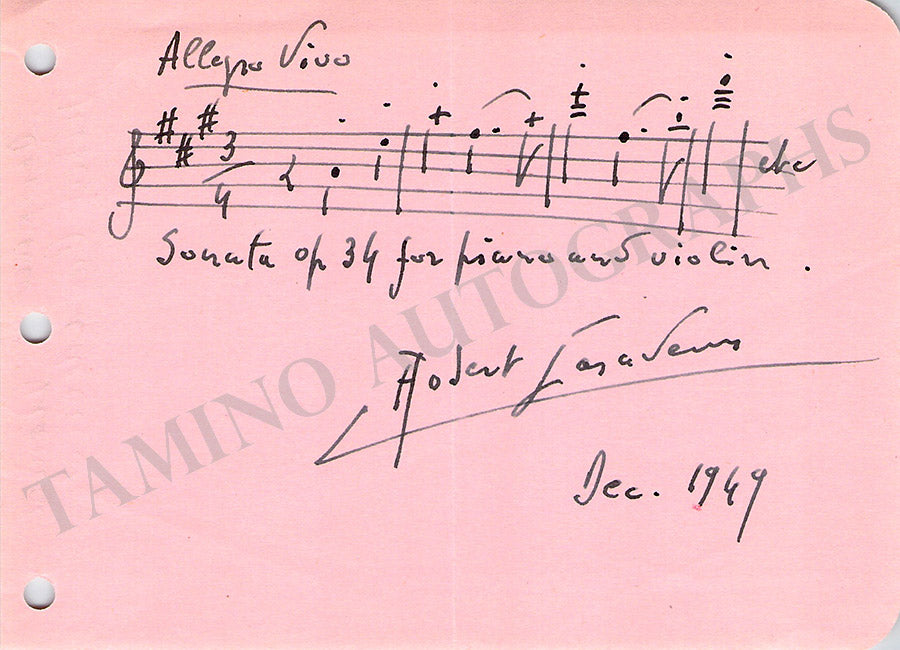 Allegro Vivo
3
4
etc
Sonata op 34 for piano and violin.
Robert Casadesus
Dec. 1949
TAMINO AUTOGRAPHS